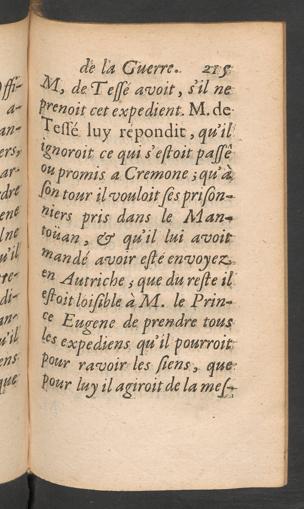 de la Guerre. 215
M, de Tessé avoit, s'il ne
prenoit cet expedient. M. de
Teſſé luy répondit, qu'il
ignoroit ce qui s'eſtoit paſſé
ou promis a Cremone ; qu'à
ſon tour il vouloit ſes priſon-
niers pris dans le Man-
toüan, & qu'il lui avoit
mandé avoir eſté envoyez
en Autriche ; que du reſte il
eſtoit loiſible à M. le Prin-
ce Eugene de prendre tous
les expediens qu'il pourroit
pour ravoir les ſiens, que
pour luy il agiroit de la meſ-